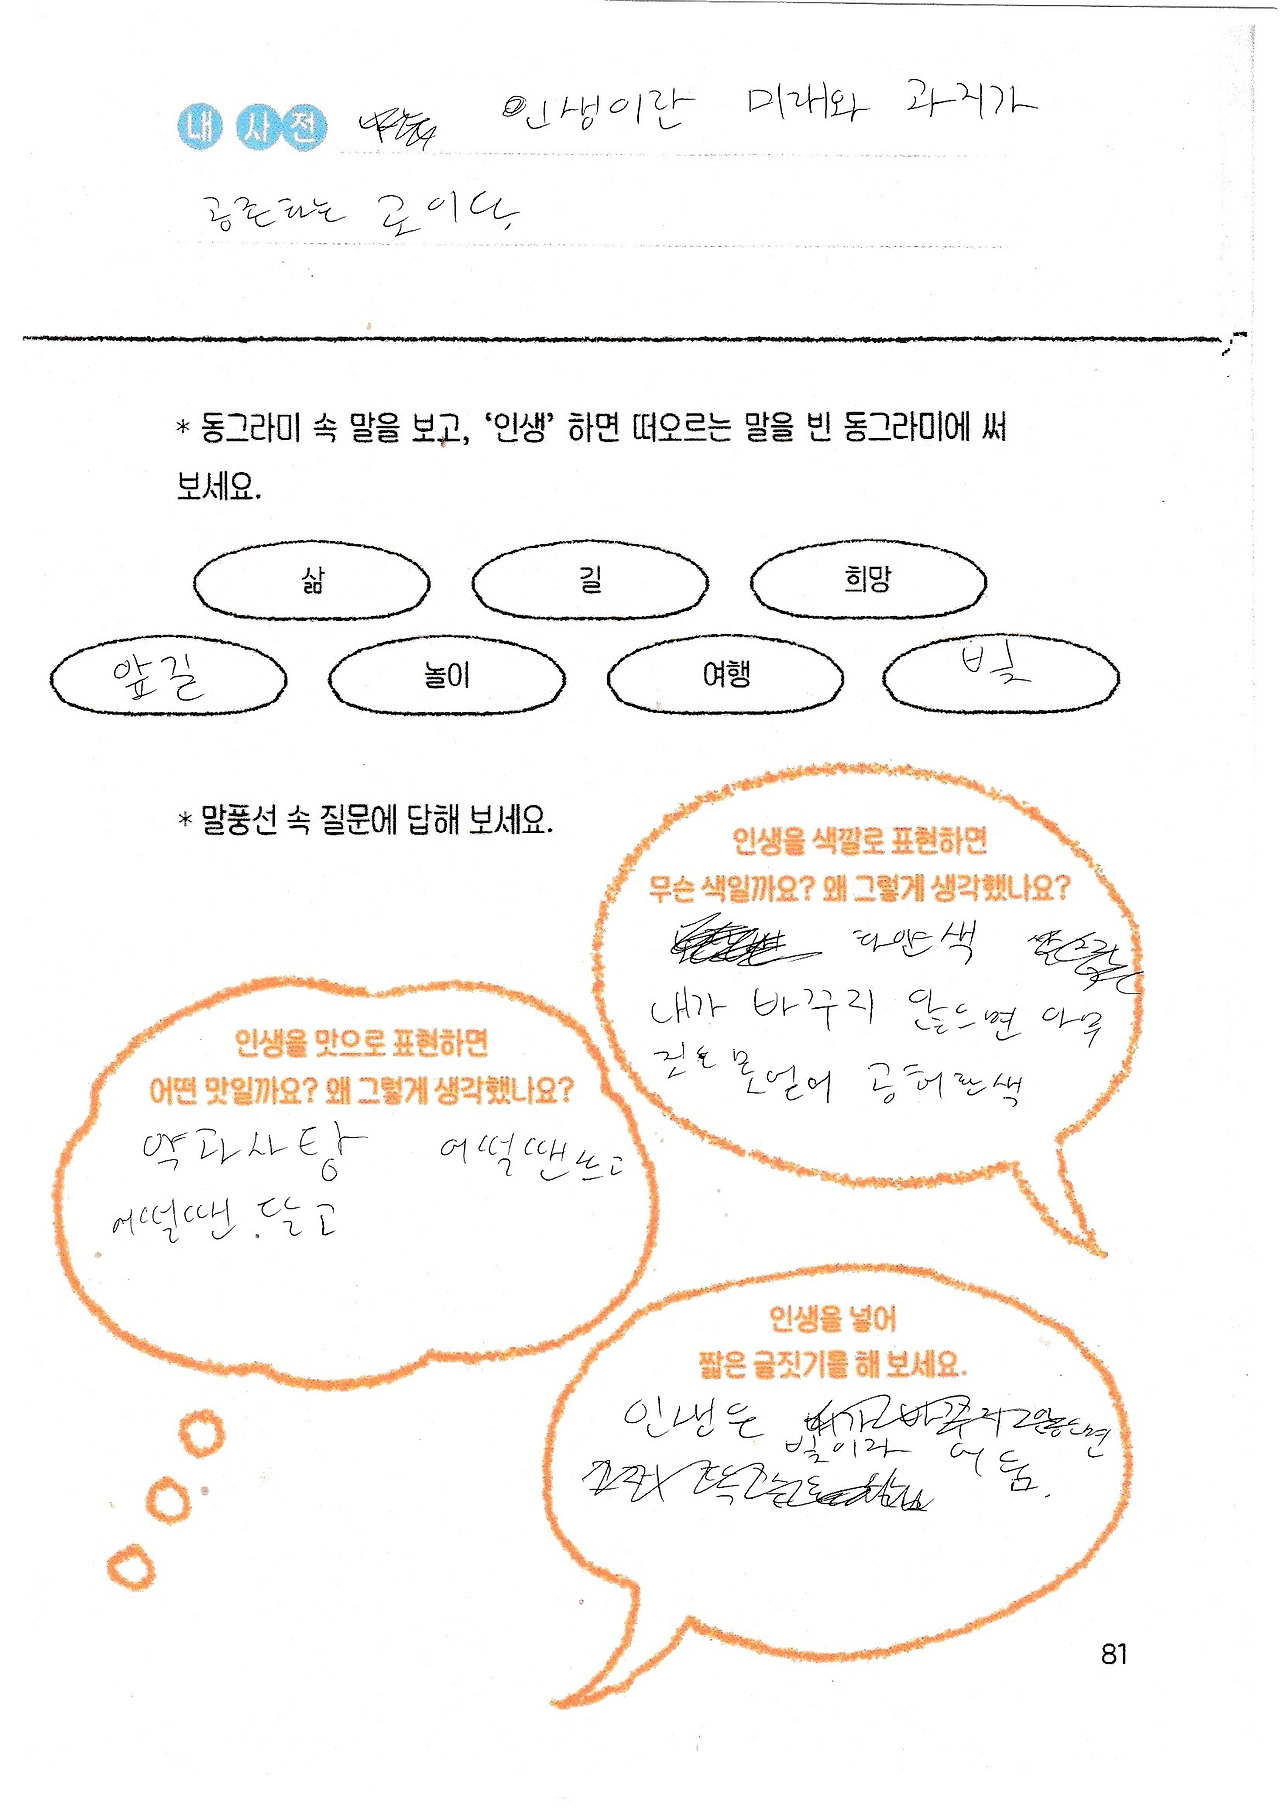 내 사전 인생이란 미래와 과거가
공존하는 곳이다.
* 동그라미 속 말을 보고, ‘인생’ 하면 떠오르는 말을 빈 동그라미에 써
보세요.
삶 길 희망
앞길 놀이 여행 빛
* 말풍선 속 질문에 답해 보세요.
인생을 색깔로 표현하면
무슨 색일까요? 왜 그렇게 생각했나요?
하얀색
내가 바꾸지 않으면 아무
것도 못얻어 공허한색
인생을 맛으로 표현하면
어떤 맛일까요? 왜 그렇게 생각했나요?
약과사탕 어떨땐쓰고
어떨땐 달고
인생을 넣어
짧은 글짓기를 해 보세요.
인생은
빛이라 어둠.
81